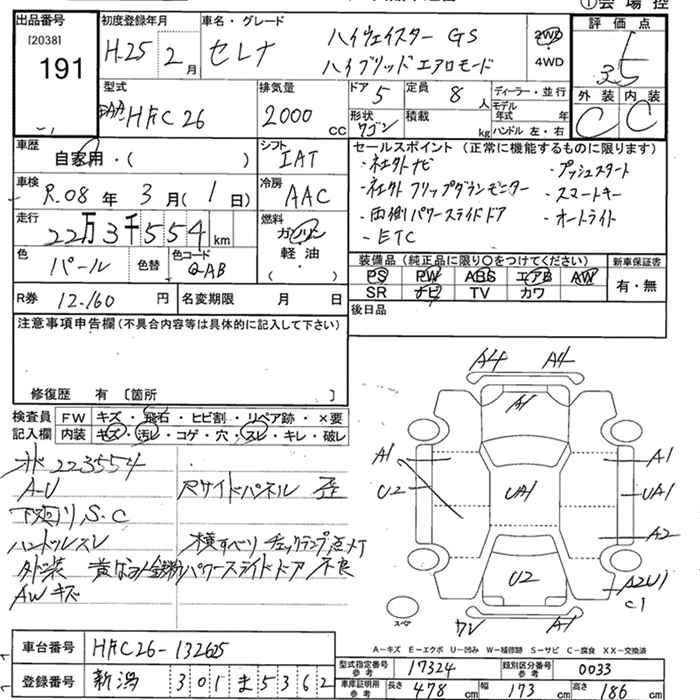 ①会場控
出品番号
[2038]
191
初度登録年月
H.25 2月
車名・グレード
セレナ
ハイウェイスター GS
ハイブリッド エアロモード
2WD
4WD
評価点
3.5
外装 内装
C C
型式
DAA HFC26
排気量
2000 cc
ドア 5
定員 8 人
形状 ワゴン
積載 kg
ディーラー・並行
モデル年式 年式
ハンドル 左・右
車歴
自家用・( )
シフト
IAT
車検
R.08 年 3 月( 1 日)
冷房
AAC
走行
22万3千554 km
燃料
ガソリン
軽油
・( )
色
パール
色替
色コード
QAB
R券 12.160 円
名変期限 月 日
セールスポイント (正常に機能するものに限ります)
・社外ナビ ・プッシュスタート
・社外フリップダウンモニター ・スマートキー
・両側パワースライドドア ・オートライト
・ETC
装備品(純正品に限り○をつけてください)
PS PW ABS エアB AW
SR ナビ TV カワ
新車保証書
有・無
後日品
注意事項申告欄(不具合内容等は具体的に記入して下さい)
修復歴 有 〔箇所 〕
検査員記入欄
FW キズ・飛石・ヒビ割・リペア跡・×要
内装 キズ・汚レ・コゲ・穴・スレ・キレ・破レ
223554
A-U
Rサイドパネル 歪
下廻り S.C
ハンドルスレ
横すべり チェックランプ点灯
外装
パワースライドドア 不良
AWキズ
A4 A4
A1
A1 A1
U2 UA1 UA1
A2
U2 A2U1
C1
スペア
A1
A－キズ E－エクボ U－凹み W－補修跡 S－サビ C－腐食 XX－交換済
車台番号 HFC26-132625
登録番号 新潟 301 ま 5362
型式指定番号 参考 17324
類別区分番号 参考 0033
車庫証明用 参考 長さ 478 cm 幅 173 cm 高さ 186 cm